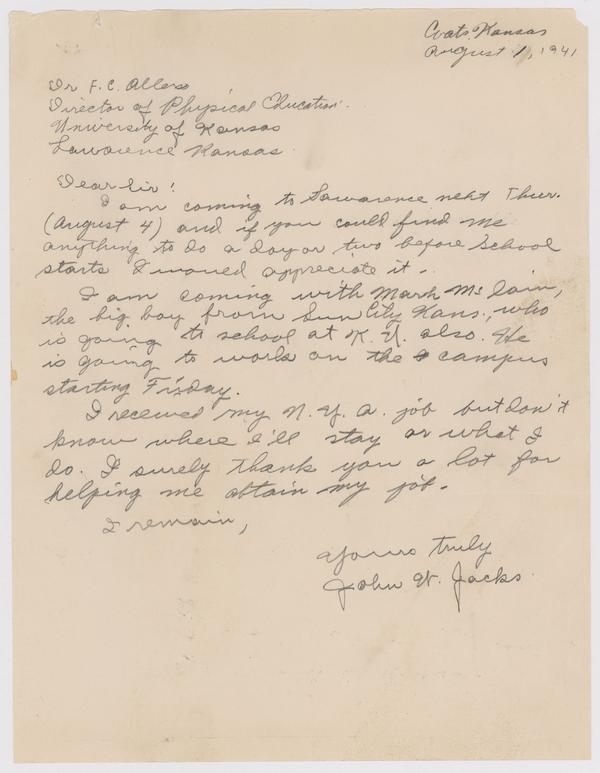 Coats, Kansas
August 1, 1941
Dr F. C. Allen
Director of Physical Education.
University of Kansas
Lawarence Kansas.
Dear Sir!
I am coming to Lawarence next Thur.
(August 4) and if you could find me
anything to do a day or two before School
starts I would appreciate it.
I am coming with Mark Mc Cain,
the big boy from Sun City Kans., who
is going to school at K. U. also. He
is going to work on the campus
starting Friday.
I received my N. Y. A. job but don't
know where I'll stay or what I
do. I surely thank you a lot for
helping me obtain my job.
I remain,
Yours truly
John W. Jacks.